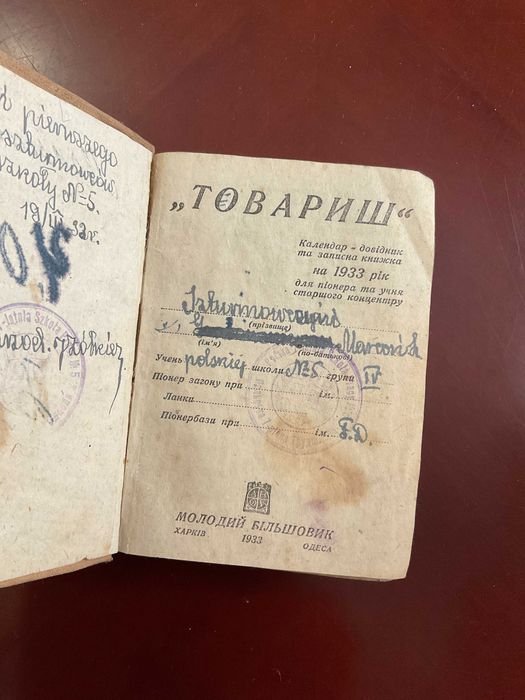 pierwszego
szturmowców
szkoły № 5.
19/III 33 r.
„ТОВАРИШ“
Календар - довідник
та записна книжка
на 1933 рік
для піонера та учня
старшого концентру
(прізвище)
Marconich
(ім'я) (по-батькові)
Учень polskiej школи № 5 групи IV
Піонер загону при ім.
Ланки
Піонербази при ім. F.D.
МОЛОДИЙ БІЛЬШОВИК
ХАРКІВ 1933 ОДЕСА